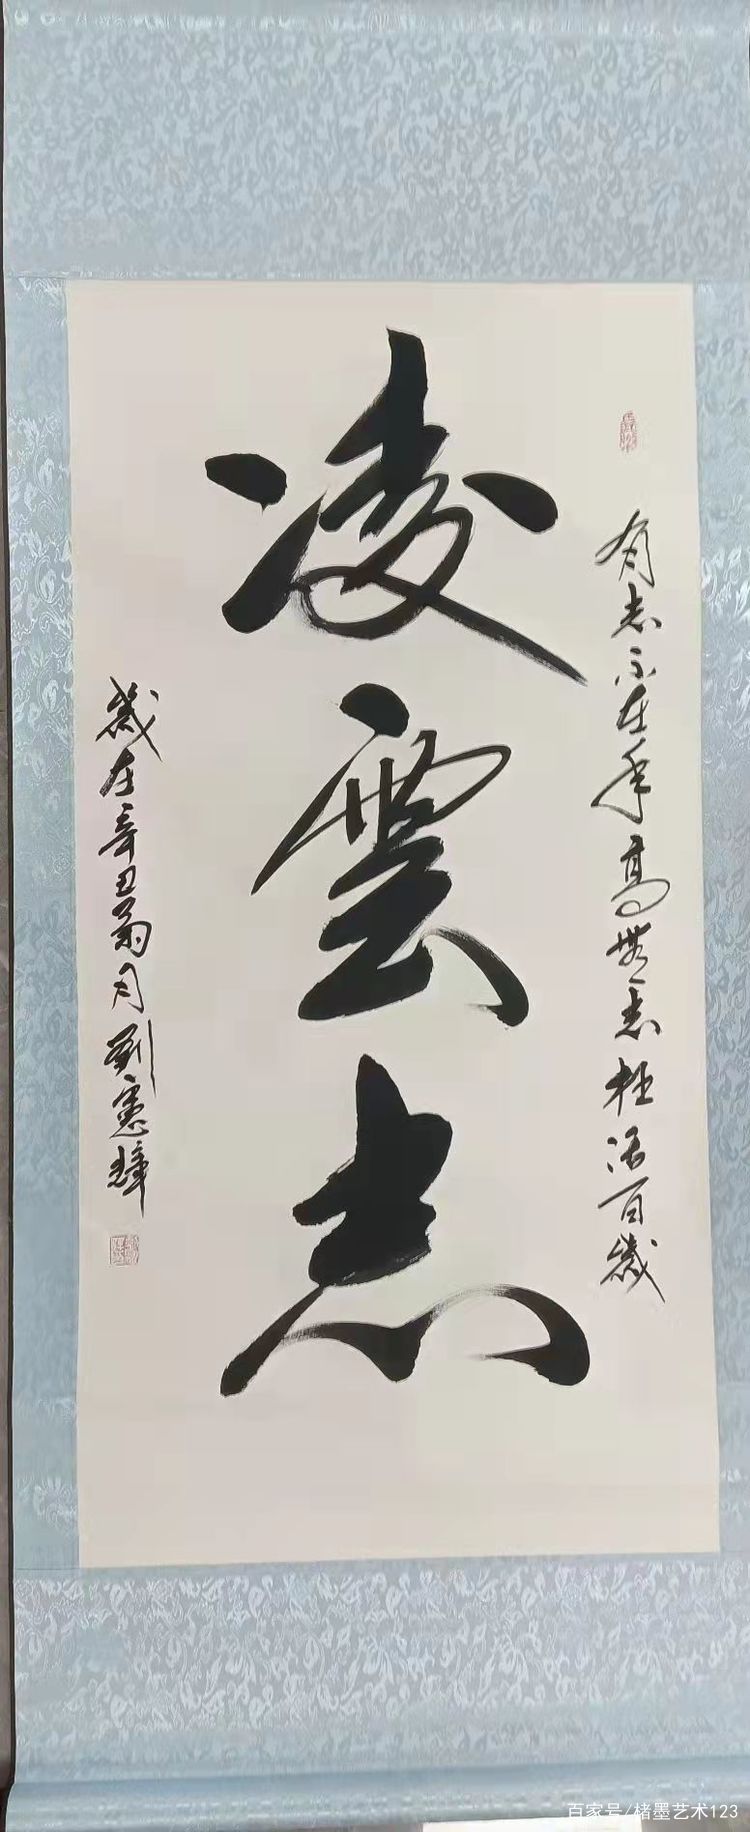 有志不在年高無志枉活百歲
凌雲志
歲在辛丑菊月劉憲輝
百家号/楮墨艺术123